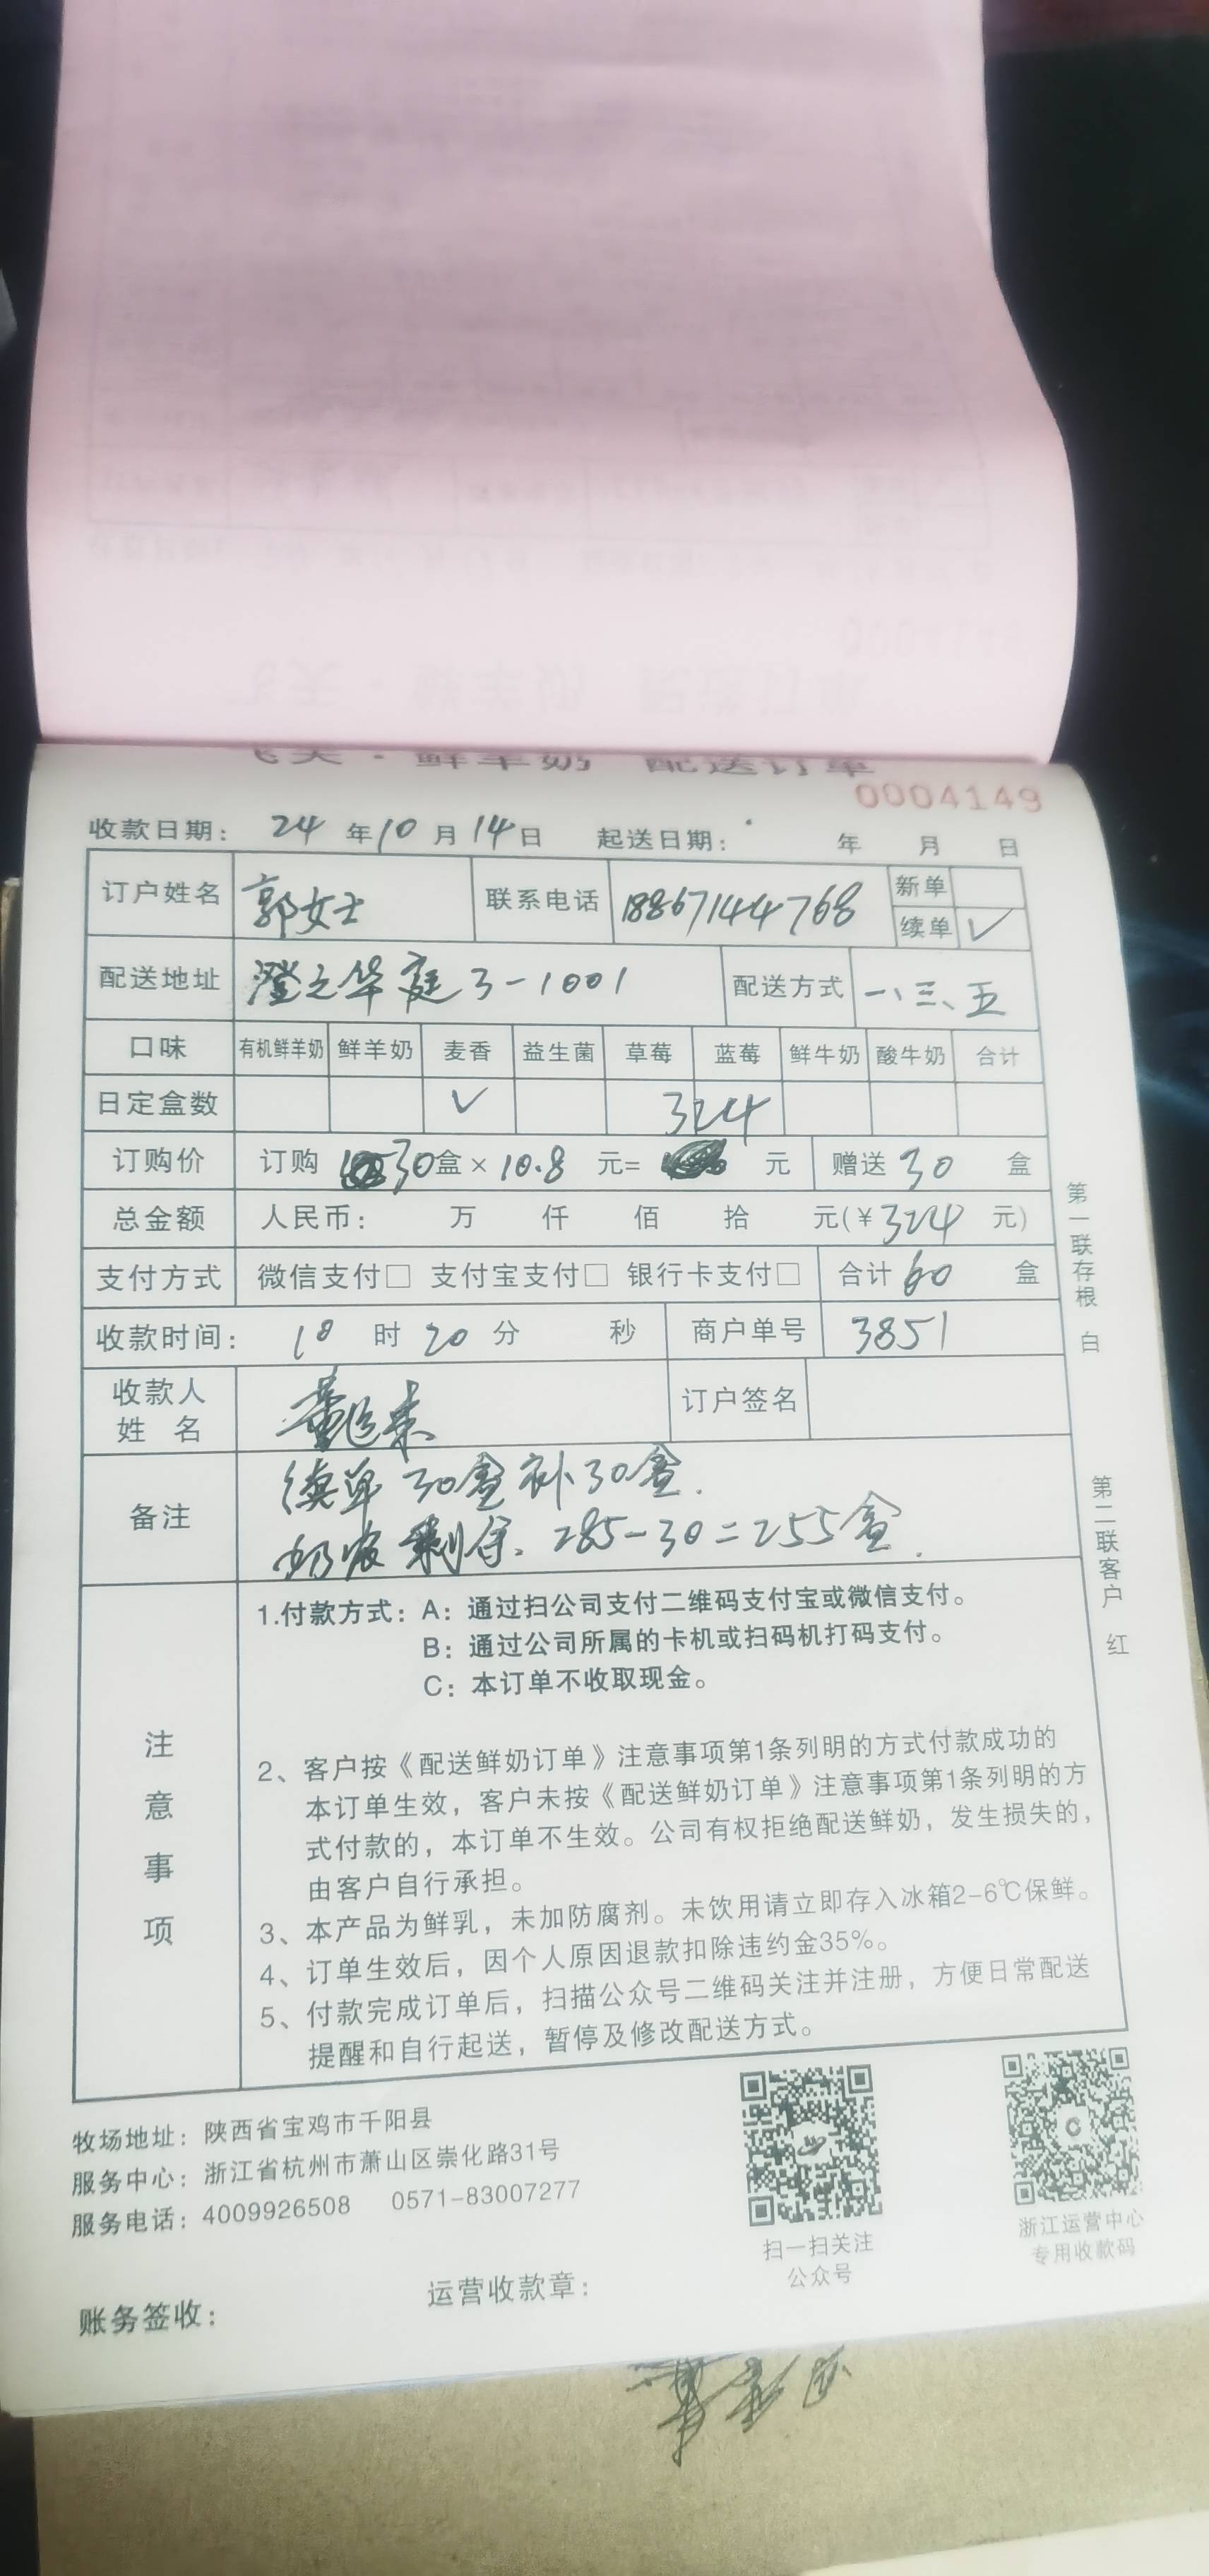 飞天·鲜羊奶 配送订单
0004149
收款日期: 24 年 10 月 14 日 起送日期: 年 月 日
订户姓名 郭女士 联系电话 18867144768 新单
续单 ✓
配送地址 澄之华庭3-1001 配送方式 一、三、五
口味 有机鲜羊奶 鲜羊奶 麦香 益生菌 草莓 蓝莓 鲜牛奶 酸牛奶 合计
日定盒数 ✓ 324
订购价 订购 30盒×10.8 元= 元 赠送 30 盒
总金额 人民币: 万 仟 佰 拾 元(¥324 元)
支付方式 微信支付□ 支付宝支付□ 银行卡支付□ 合计 60 盒
收款时间: 18 时 20 分 秒 商户单号 3851
收款人
姓 名 订户签名
备注 续单30盒补30盒.
剩余. 285-30=255盒.
注意事项
1.付款方式: A: 通过扫公司支付二维码支付宝或微信支付。
B: 通过公司所属的卡机或扫码机打码支付。
C: 本订单不收取现金。
2、客户按《配送鲜奶订单》注意事项第1条列明的方式付款成功的
本订单生效, 客户未按《配送鲜奶订单》注意事项第1条列明的方
式付款的, 本订单不生效。公司有权拒绝配送鲜奶, 发生损失的,
由客户自行承担。
3、本产品为鲜乳, 未加防腐剂。未饮用请立即存入冰箱2-6℃保鲜。
4、订单生效后, 因个人原因退款扣除违约金35%。
5、付款完成订单后, 扫描公众号二维码关注并注册, 方便日常配送
提醒和自行起送, 暂停及修改配送方式。
第一联存根 白
第二联客户 红
牧场地址: 陕西省宝鸡市千阳县
服务中心: 浙江省杭州市萧山区崇化路31号
服务电话: 4009926508 0571-83007277
扫一扫关注
公众号
浙江运营中心
专用收款码
运营收款章:
账务签收: